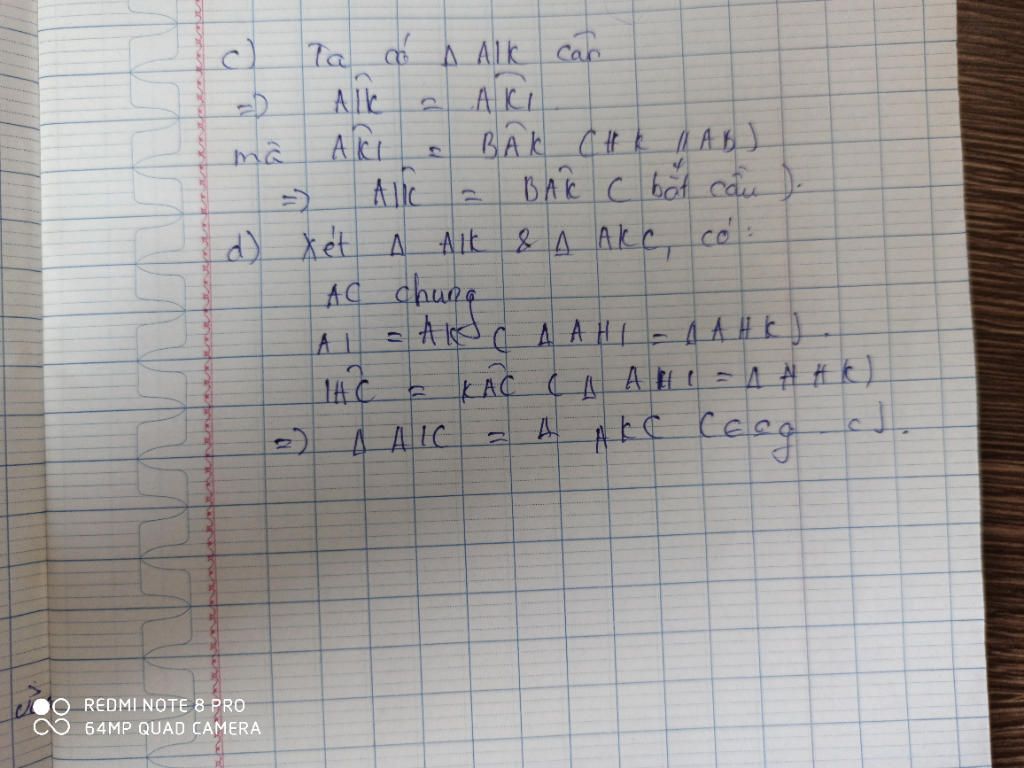 c) Ta có Δ AIK cân
=) AIK̂ = AK̂I
mà AK̂I = BÂK (HK // AB)
=) AIK̂ = BAK̂ ( bắt cầu ).
d) Xét Δ AIK & Δ AKC, có:
AC chung
AI = AK ( Δ AHI = Δ AHK ).
IAĈ = KAĈ ( Δ AHI = Δ AHK )
=) Δ AIC = Δ AKC (c.c.g - c).
REDMI NOTE 8 PRO
64MP QUAD CAMERA